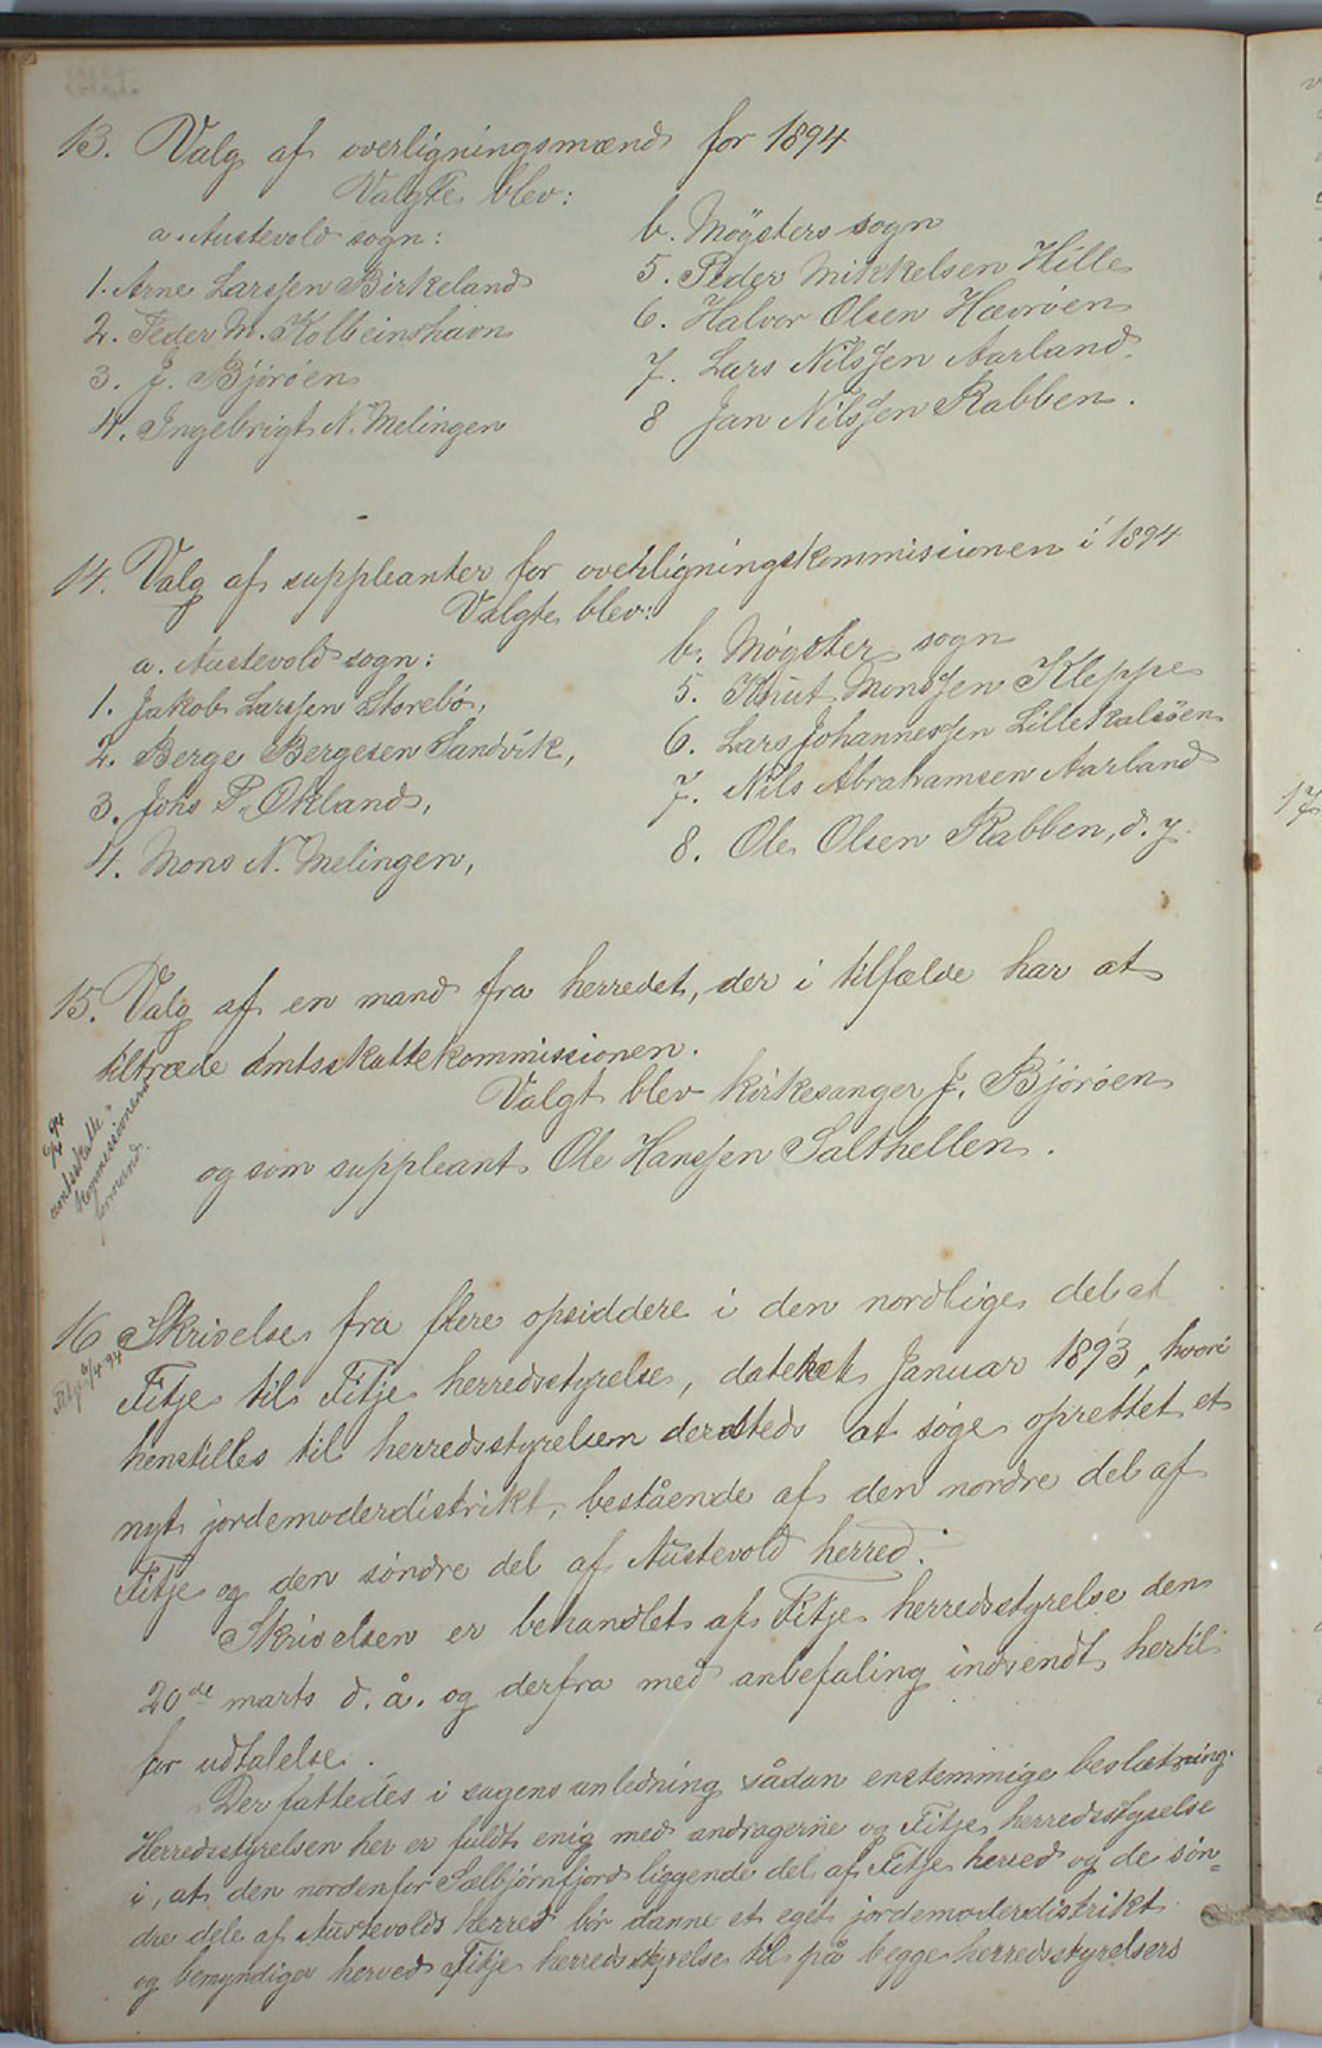 13. Valg af overligningsmænd for 1894
Valgte blev:
a. Austevold sogn:
1. Arne Larssen Birkeland
2. Peder M. Kolbeinshavn
3. J. Björöen
4. Ingebrigt N. Melingen
b. Møgsters sogn
5. Peder Mikkelsen Hille
6. Halvor Olsen Hevröen
7. Lars Nilssen Aarland.
8 Jan Nilssen Rabben.
14. Valg af suppleanter for overligningskommissionen i 1894
Valgte blev:
a. Austevold sogn:
1. Jakob Larssen Storebö,
2. Berge Bergesen Sandvik,
3. Johs P. Økland,
4. Mons N. Melingen,
b. Møgster sogn
5. Knut Monssen Kleppe
6. Lars Johannessen Lillekalsöen
7. Nils Abrahamsen Aarland
8. Ole Olsen Rabben, d. y.
15. Valg af en mand fra herredet, der i tilfælde har at
tiltræde amtsskattekommissionen.
Valgt blev kirkesanger J. Björöen
og som suppleant Ole Hanssen Salthellen.
6/4 94
amtsskatte-
kommissionens
formand.
16 Skrivelse fra flere opsiddere i den nordlige del af
Fitje til Fitje herredsstyrelse, dateret Januar 1893, hvori
henstilles til herredsstyrelsen dersteds at søge oprettet et
nyt jordemoderdistrikt, bestående af den nordre del af
Fitje og den söndre del af Austevold herred.
Fitje 6/4 94
Skrivelsen er behandlet af Fitje herredsstyrelse den
20de marts d. å. og derfra med anbefaling indsendt hertil
for udtalelse.
Der fattedes i sagens anledning sådan enstemmige beslutning:
Herredsstyrelsen her er fuldt enig med andragerne og Fitje herredsstyrelse
i, at den nordenfor Selbjørnfjord liggende del af Fitje herred og de søn=
dre dele af Austevolds herred bør danne et eget jordemoderdistrikt
og bemyndiger herved Fitje herredsstyrelse til på begge herredsstyrelsers
17